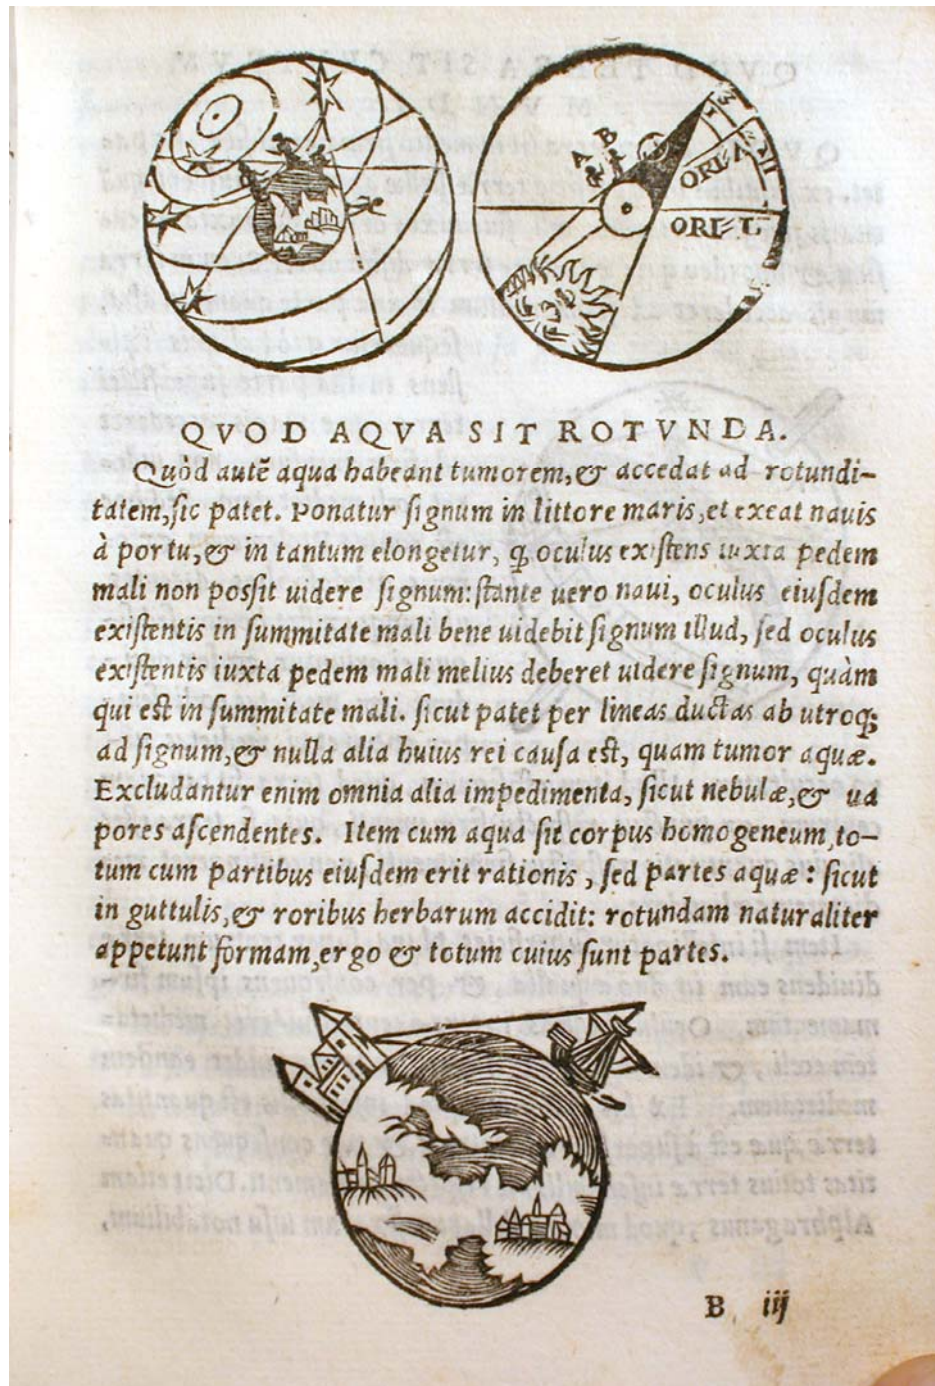 A B
ORIE
ORIET
QVOD AQVA SIT ROTVNDA.
Quòd autē aqua habeant tumorem, & accedat ad rotundi-
tatem, ſic patet. Ponatur ſignum in littore maris, et exeat nauis
à portu, & in tantum elongetur, ꝙ oculus exiſtens iuxta pedem
mali non poſſit uidere ſignum: ſtante uero naui, oculus eiuſdem
exiſtentis in ſummitate mali bene uidebit ſignum illud, ſed oculus
exiſtentis iuxta pedem mali melius deberet uidere ſignum, quàm
qui eſt in ſummitate mali. ſicut patet per lineas ductas ab utroqꝫ
ad ſignum, & nulla alia huius rei cauſa eſt, quam tumor aquæ.
Excludantur enim omnia alia impedimenta, ſicut nebulæ, & ua
pores aſcendentes. Item cum aqua ſit corpus homogeneum, to-
tum cum partibus eiuſdem erit rationis, ſed partes aquæ: ſicut
in guttulis, & roribus herbarum accidit: rotundam naturaliter
appetunt formam, ergo & totum cuius ſunt partes.
B iij